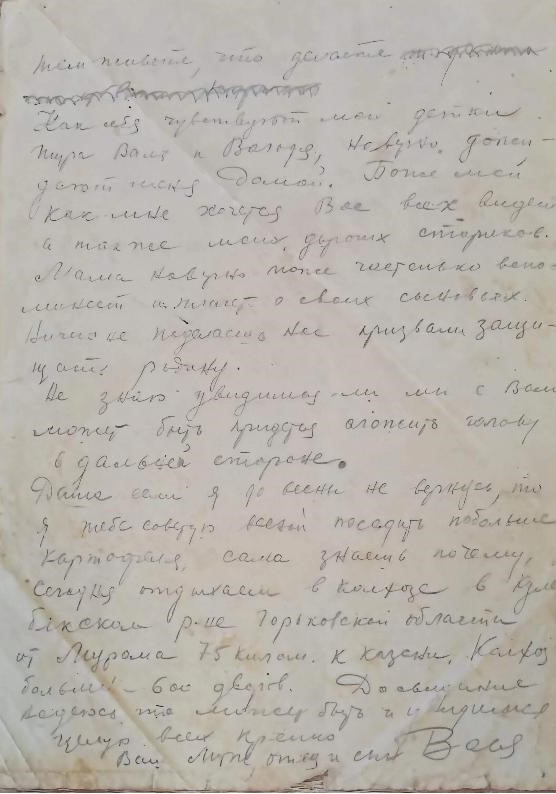 там живете, что делаете
Как себя чувствуют мои детки
Шура Валя и Володя, наверно дожи-
дают меня домой. Боже мой
как мне хочется Вас всех видеть
а также моих дорогих стариков.
Мама наверно тоже частенько вспо-
минает и плачет о своих сыновьях.
Ничего не поделаешь нас призвали защи-
щать родину.
Не знаю увидимся-ли мы с Вами
может быть придется сложить голову
в дальней стороне.
Даша если я до весны не вернусь, то
я тебе советую весной посадить побольше
картофеля, сама знаешь почему,
сегодня отдыхаем в колхозе в
р-не Горьковской области
от Мурома 75 килом. к Казани. Колхоз
большой – 600 дворов. До свидание
надеюсь что может быть и увидимся
Целую всех крепко
Ваш Муж, отец и сын Вася